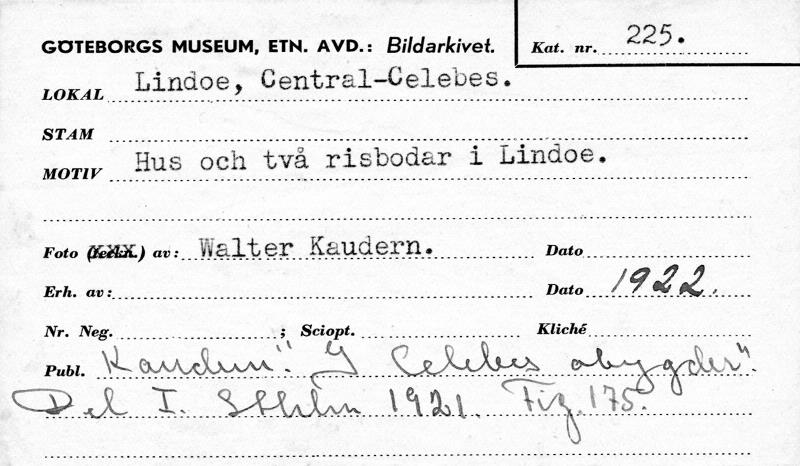 GÖTEBORGS MUSEUM, ETN. AVD.: Bildarkivet. Kat. nr. 225.
LOKAL Lindoe, Central-Celebes.
STAM
MOTIV Hus och två risbodar i Lindoe.
Foto (teckn.) av: Walter Kaudern. Dato
Erh. av: Dato 1922.
Nr. Neg. ; Sciopt. Kliché
Publ. Kaudern: "I Celebes obygder".
Del I. Sthlm 1921. Fig. 175.